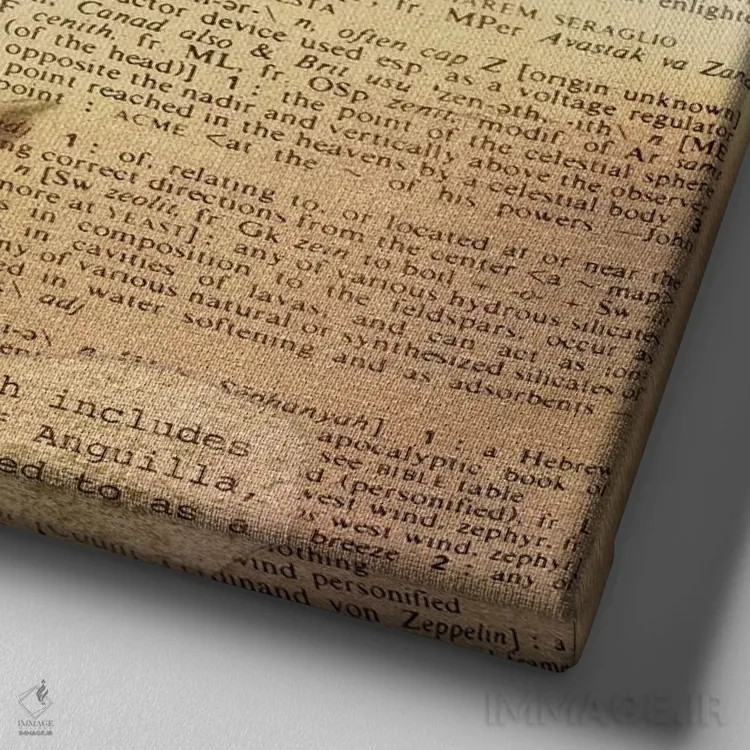 HAREM SERAGLIO
enlight
n, often cap Z [origin unknown]
, fr. MPer Avastāk va Zand
actor device used esp. as a voltage regulator
Canad also & Brit usu 'zen-əth, -ith\ n [ME
cenith, fr. ML, fr. OSp zenit, modif. of Ar samt
(of the head)] 1 : the point of the celestial sphere
opposite the nadir and vertically above the observer
point reached in the heavens by a celestial body 3
point : ACME <at the ~ of his powers —John
adj 1 : of, relating to, or located at or near the
ng correct directions from the center <a ~ map>
n [Sw zeolit, fr. Gk zein to boil + -o- + Sw
more at YEAST] : any of various hydrous silicates
in composition to the feldspars, occur as
in cavities of lavas, and can act as ion
ny of various natural or synthesized silicates of
ed in water softening and as adsorbents
adj
Səphanyāh] 1 : a Hebrew
apocalyptic book of
see BIBLE table
h includes
Anguilla,
ed to as a
d (personified), fr. L
west wind, zephyr, fr.
is west wind, zephyr]
breeze 2 : any of
nothing
wind personified
[Count Ferdinand von Zeppelin] : a
frame
IMMAGE
IMMAGE.IR
IMMAGE.IR